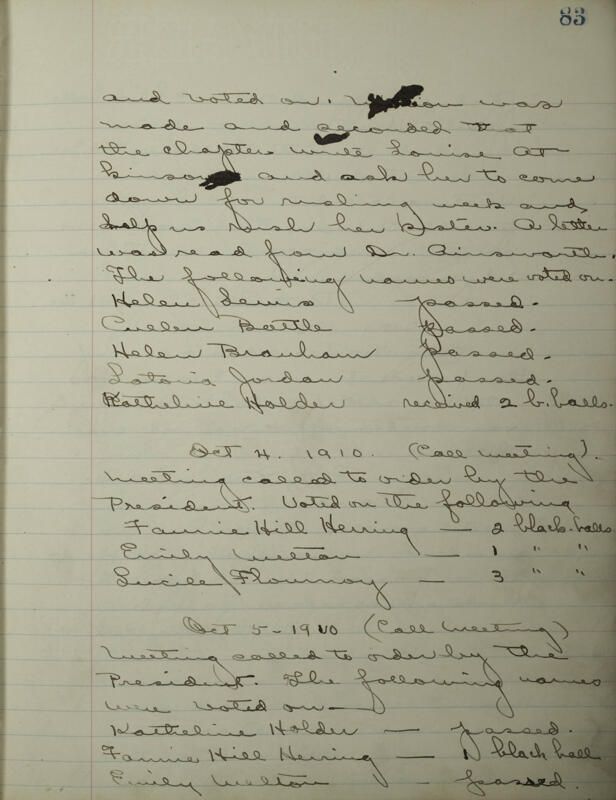 83
and voted on. Motion was
made and seconded that
the chapter write Louise At-
kinson and ask her to come
down for rushing week and
help us rush her sister. A letter
was read from Dr. Ainsworth.
The following names were voted on.
Helen Lewis passed.
Cuelen Battle passed.
Helen Branham passed.
Jordan passed.
Katheline Holder received 2 b. balls.
Oct 4. 1910. (Call meeting).
Meeting called to order by the
President. Voted on the following
Fannie Hill Herring — 2 black-balls
Emily Melton — 1 " "
Lucile Flournoy — 3 " "
Oct 5 - 1910 (Call Meeting)
Meeting called to order by the
President. The following names
were voted on —
Katheline Holder — passed.
Fannie Hill Herring — 1 black ball
Emily Melton — passed.